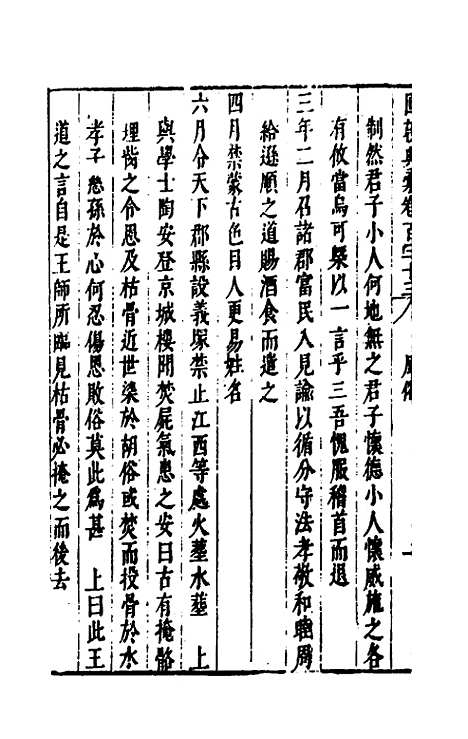 國朝典彙卷百字十三 風俗
制然君子小人何地無之君子懷德小人懷威施之各
有攸當烏可槩以一言乎三吾愧服稽首而退
三年二月召諸郡富民入見諭以循分守法孝敬和睦周
給遜順之道賜酒食而遣之
四月禁蒙古色目人更易姓名
六月令天下郡縣設義塚禁止江西等處火塟水塟 上
與學士陶安登京城樓聞焚屍氣惡之安曰古有掩骼
埋胔之令恩及枯骨近世染於胡俗或焚而投骨於水
孝子慈孫於心何忍傷恩敗俗莫此爲甚 上曰此王
道之言自是王師所臨見枯骨必掩之而後去